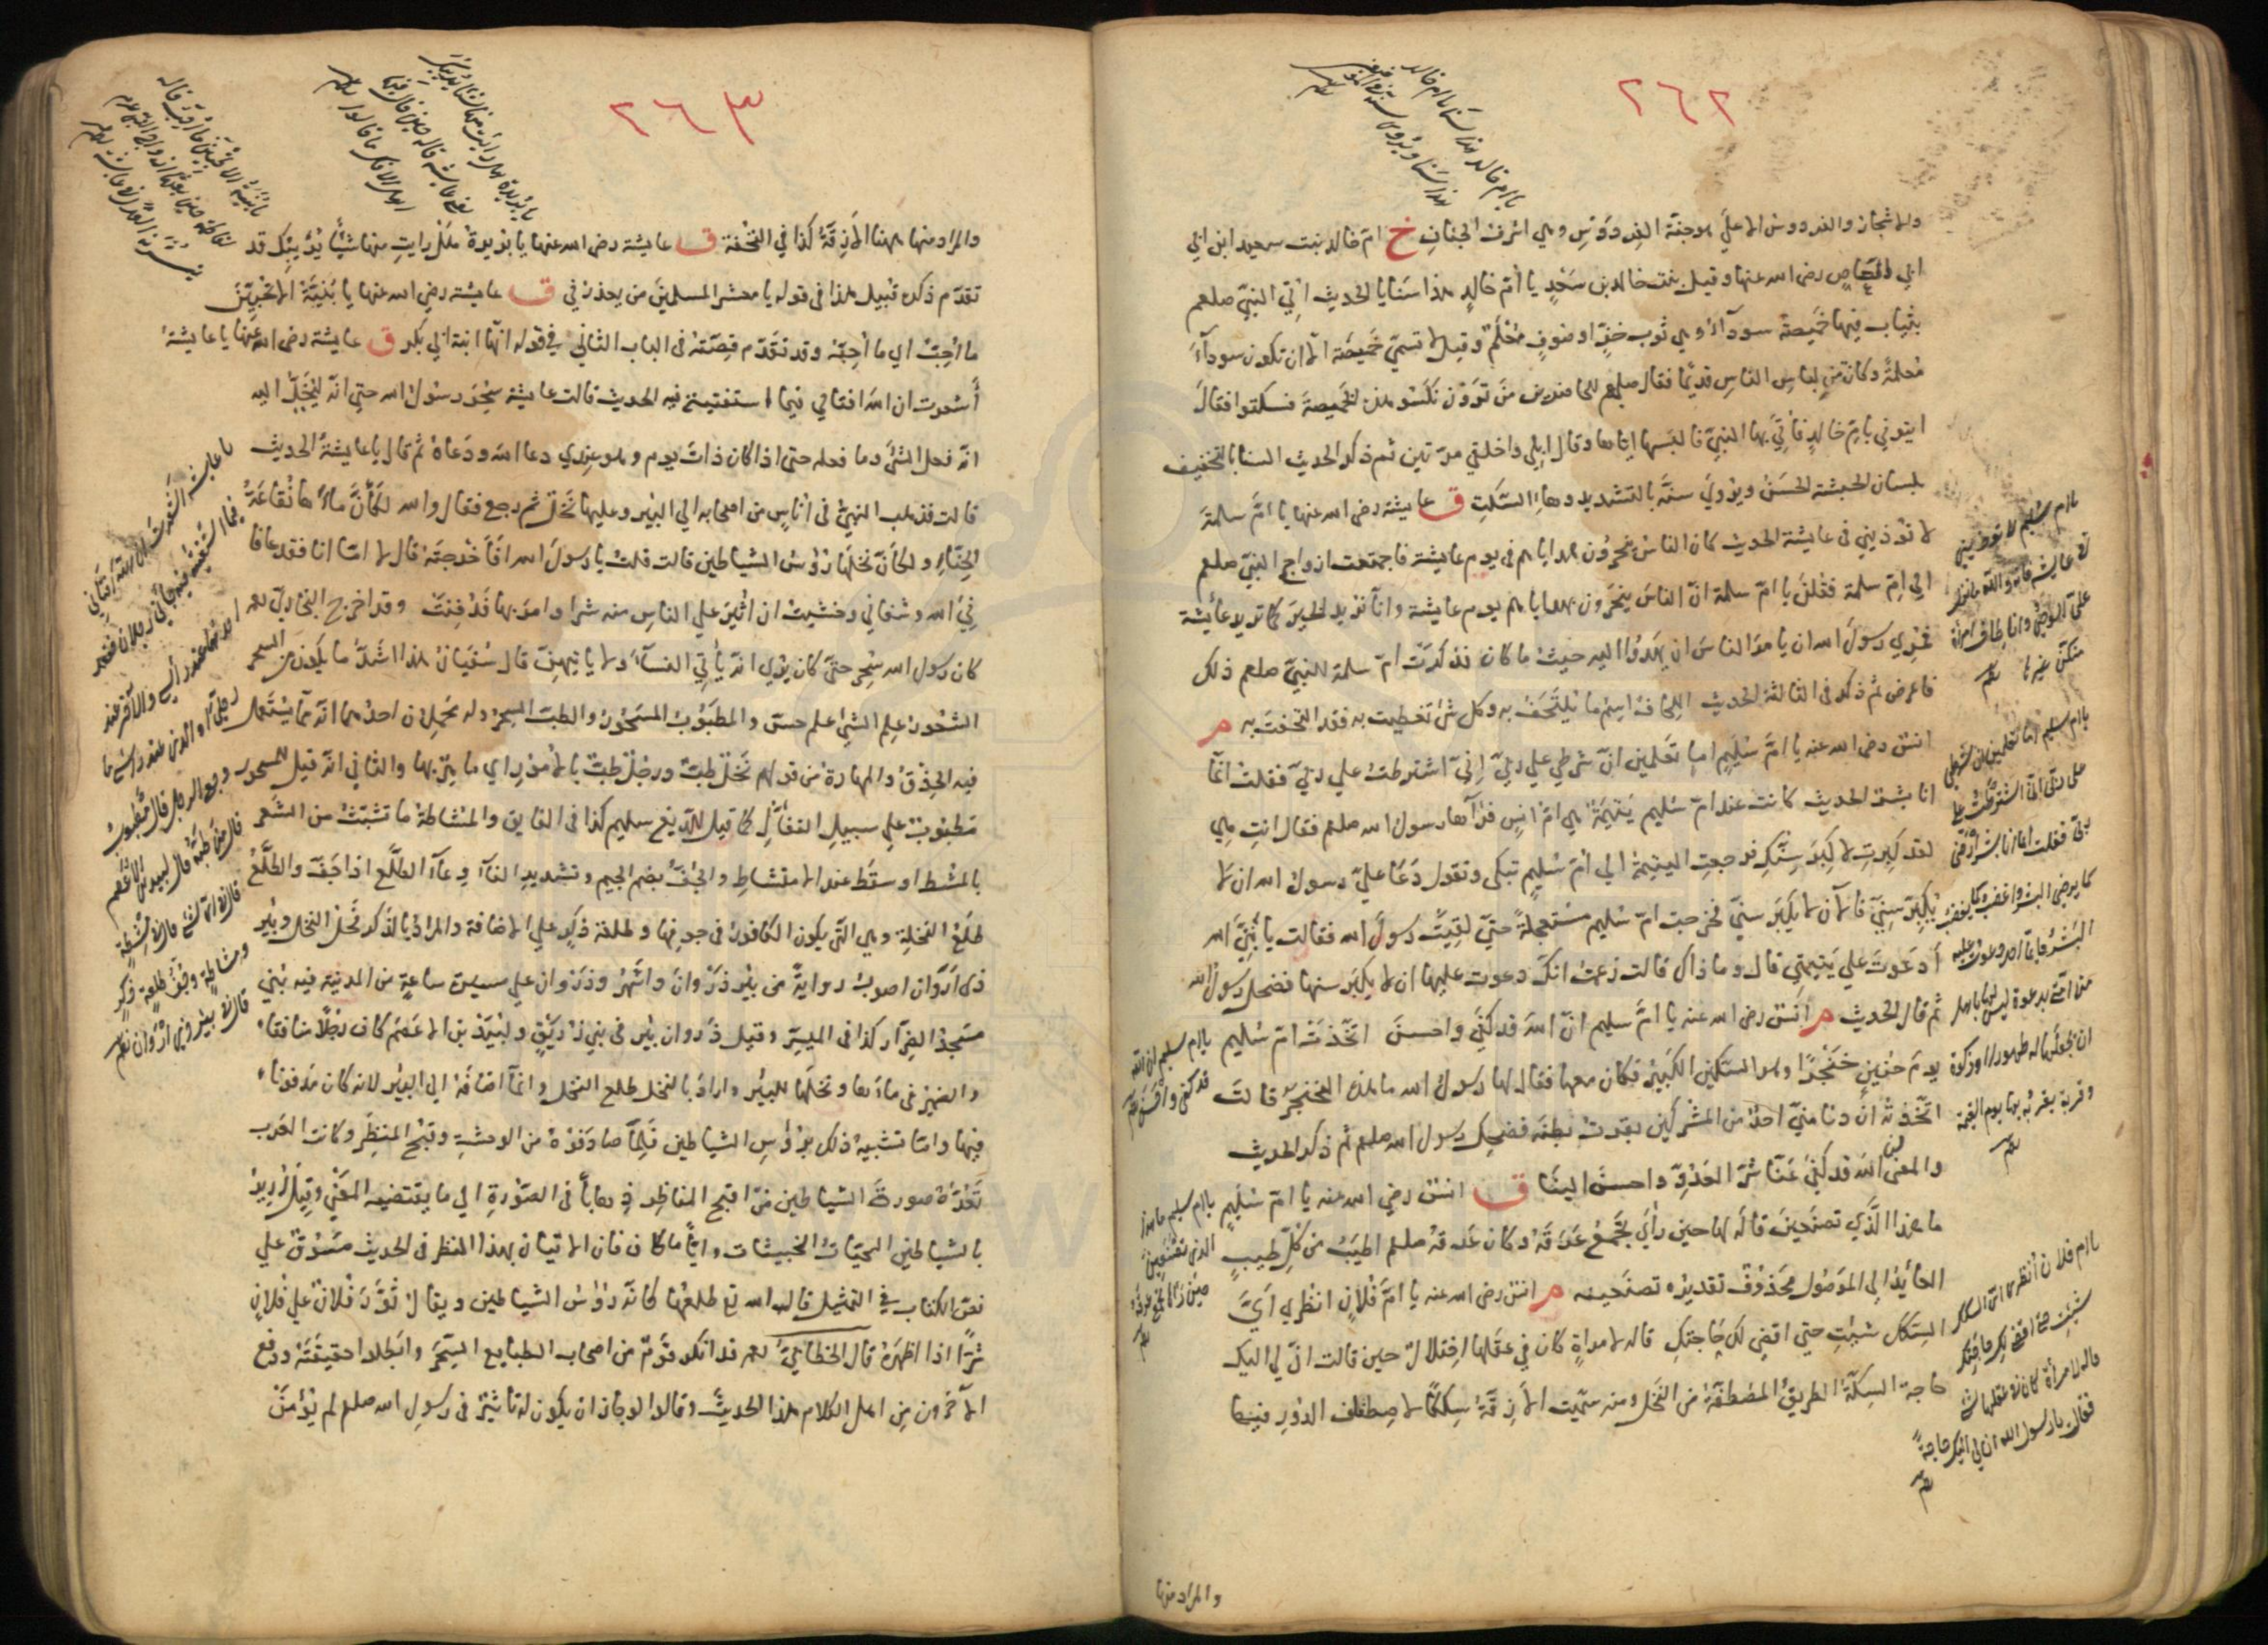 ٢٦٢
والاشجار والفردوس الاعلي هو جنة الفردوس وهي اشرف الجنان خ ام خالد بنت سعيد ابن ابي
ابي العاص رضى الله عنها وقيل بنت خالد بن سعد يا ام خالد هذا سنا يا الحديث اتي النبي صلعم
بثياب فيها خميصة سوداء وهي ثوب خز او صوف معلم وقيل لا تسمي خميصة الا ان تكون سوداء
معلمة وكان من لباس الناس قديما فقال صلعم من ترون نكسو هذه الخميصة فسكتوا فقال
ايتوني بام خالد فاتي بها النبي فالبسها اياها وقال ابلي واخلقي مرتين ثم ذكر الحديث السنا بالتخفيف
بلسان الحبشة الحسن ويروي سنه بالتشديد وهاء السكت ق عايشة رضى الله عنها يا ام سلمة
لا تؤذيني في عايشة الحديث كان الناس يتحرون بهداياهم في يوم عايشة فاجتمعت ازواج النبي صلعم
الي ام سلمة فقلن يا ام سلمة ان الناس يتحرون بهداياهم يوم عايشة وانا نريد الخير كما تريد عائشة
فمري رسول الله ان يامر الناس ان يهدوا اليه حيث ما كان فذكرت ام سلمة للنبي صلعم ذلك
فاعرض ثم ذكر في الثالثة الحديث اللحاف اسم ما يلتحف به وكل شئ تغطيت به فقد التحفت به م
انس رضى الله عنه يا ام سليم اما تعلمين ان شرطي علي ربي اني اشترطت علي ربي فقلت انما
انا بشر الحديث كانت عند ام سليم يتيمة وهي ام انس فرآها رسول الله صلعم فقال انت هي
لقد كبرت لا كبر سنك فرجعت اليتيمة الي ام سليم تبكي وتقول دعا علي رسول الله ان لا
يكبر سني فالآن لا يكبر سني فخرجت ام سليم مستعجلة حتي لقيت رسول الله فقالت يا نبي الله
أدعوت علي يتيمتي قال وما ذاك قالت زعمت انك دعوت عليها ان لا يكبر سنها فضحك رسول الله
ثم قال الحديث م انس رضى الله عنه يا ام سليم ان الله قد كفي واحسن اتخذت ام سليم
يوم حنين خنجرا وهو السكين الكبير فكان معها فقال لها رسول الله ما هذه الخنجر قالت
اتخذته ان دنا مني احد من المشركين بقرت بطنه فضحك رسول الله صلعم ثم ذكر الحديث
والمعني ان الله قد كفي عنا شر العدو واحسن الينا ق انس رضى الله عنه يا ام سليم
ما هذا الذي تصنعين قاله لها حين رأي تجمع عرقه وكان عرقه صلعم اطيب من كل طيب
العائد الي الموصول محذوف تقديره تصنعينه م انس رضى الله عنه يا ام فلان انظري اي
السكك شئت حتي اقضي لك حاجتك قاله لامراة كان في عقلها اختلال حين قالت ان لي اليك
حاجة السكة الطريق المصطفة من النخل ومنه سميت الازقة سككا لاصطفاف الدور فيها
والمراد منها
يا ام خالد هذا سنا يا ام خالد
هذا سنا ويروى سنه
يا ام سليم اما تعلمين ان شرطي
على ربى انى اشترطت على
ربى فقلت انما انا بشر ارضى
كما يرضى البشر واغضب كما يغضب
البشر فايما احد دعوت عليه
من امتى بدعوة ليس لها باهل
ان يجعلها له طهورا وزكوة
وقربة يقربه بها يوم القيمة
يا ام سليم ان الله
قد كفى واحسن
يا ام سليم ما هذا
الذي تصنعين
يا ام فلان انظرى اى السكك
شئت حتى اقضى لك حاجتك
قاله لامرأة كان فى عقلها شئ
فقالت يا رسول الله ان لى اليك حاجة
٢٦٣
والمراد منها ههنا الازقة كذا في التحفة ق عايشة رضى الله عنها يا بريرة هل رايت منها شيئا يريبك قد
تقدم ذكره قبيل هذا في قوله يا معشر المسلمين من يعذرني ق عايشة رضي الله عنها يا بنية الا تحبين
ما احب اي ما احبه وقد تقدم قصته في الباب الثاني في قوله انها ابنة ابي بكر ق عايشة رضى الله عنها يا عايشة
أشعرت ان الله افتاني فيما استفتيته فيه الحديث قالت عايشة سحر رسول الله حتي انه ليخيل اليه
انه فعل الشئ وما فعله حتي اذا كان ذات يوم وهو عندي دعا الله ودعاه ثم قال يا عايشة الحديث
قالت فذهب النبي في اناس من اصحابه الي البير وعليها نخل ثم رجع فقال والله لكأن ماءها نقاعة
الحناء ولكأن نخلها رؤس الشياطين قالت قلت يا رسول الله افأخرجته قال لا اما انا فقد عافا
ني الله وشفاني وخشيت ان اثير علي الناس منه شرا وامر بها فدفنت وقد اخرج البخاري
كان رسول الله سحر حتي كان يري انه ياتي النساء ولا ياتيهن قال سفيان هذا اشد ما يكون من السحر
الشعور علم الشئ علم حس والمطبوب المسحور والطب السحر وله محملان احدهما انه مما يستعمل
فيه الحذق والمهارة من قولهم فحل طب ورجل طب بالامور اي ماهر بها والثاني انه قيل للمسحور
مطبوب علي سبيل التفأل كما قيل للديغ سليم كذا في الفايق والمشاطة ما تشبث من الشعر
بالمشط او سقط عند الامتشاط والجف بضم الجيم وتشديد الفاء وعاء الطلع اذا جف والطلع
طلع النخلة وهي التي يكون الكافور في جوفها وطلعة ذكر علي الاضافة والمراد بالذكر فحل النخل وبير
ذي اروان اصوب رواية من بير ذروان واشهر وذروان علي مسيرة ساعة من المدينة فيه بني
مسجد الضرار كذا في الميسر وقيل ذروان بير في بني زريق ولبيد بن الاعصم كان رجلا منافقا
والضمير في ماءها ونخلها للبير واراد بالنخل طلع النخل وانما اضافه الي البير لانه كان مدفونا
فيها واما تشبيه ذلك برؤس الشياطين فلما صادفوه من الوحشة وقبح المنظر وكانت العرب
تعد صورة الشياطين من اقبح المناظر ذهابا في الصورة الي ما يقتضيه المعني وقيل اريد
بالشياطين الحيات الخبيثات وايا ما كان فان الاتيان بهذا المنظر في الحديث مسوق علي
نص الكتاب في التمثيل قال الله تع طلعها كانه رؤس الشياطين ويقال ثور فلان علي فلان
شرا اذا اظهره قال الخطابي قد انكر قوم من اصحاب الطبايع السحر وابطلوا حقيقته ودفع
الآخرون من اهل الكلام هذا الحديث وقالوا لو جاز ان يكون له تاثير في رسول الله صلعم لم يؤمن